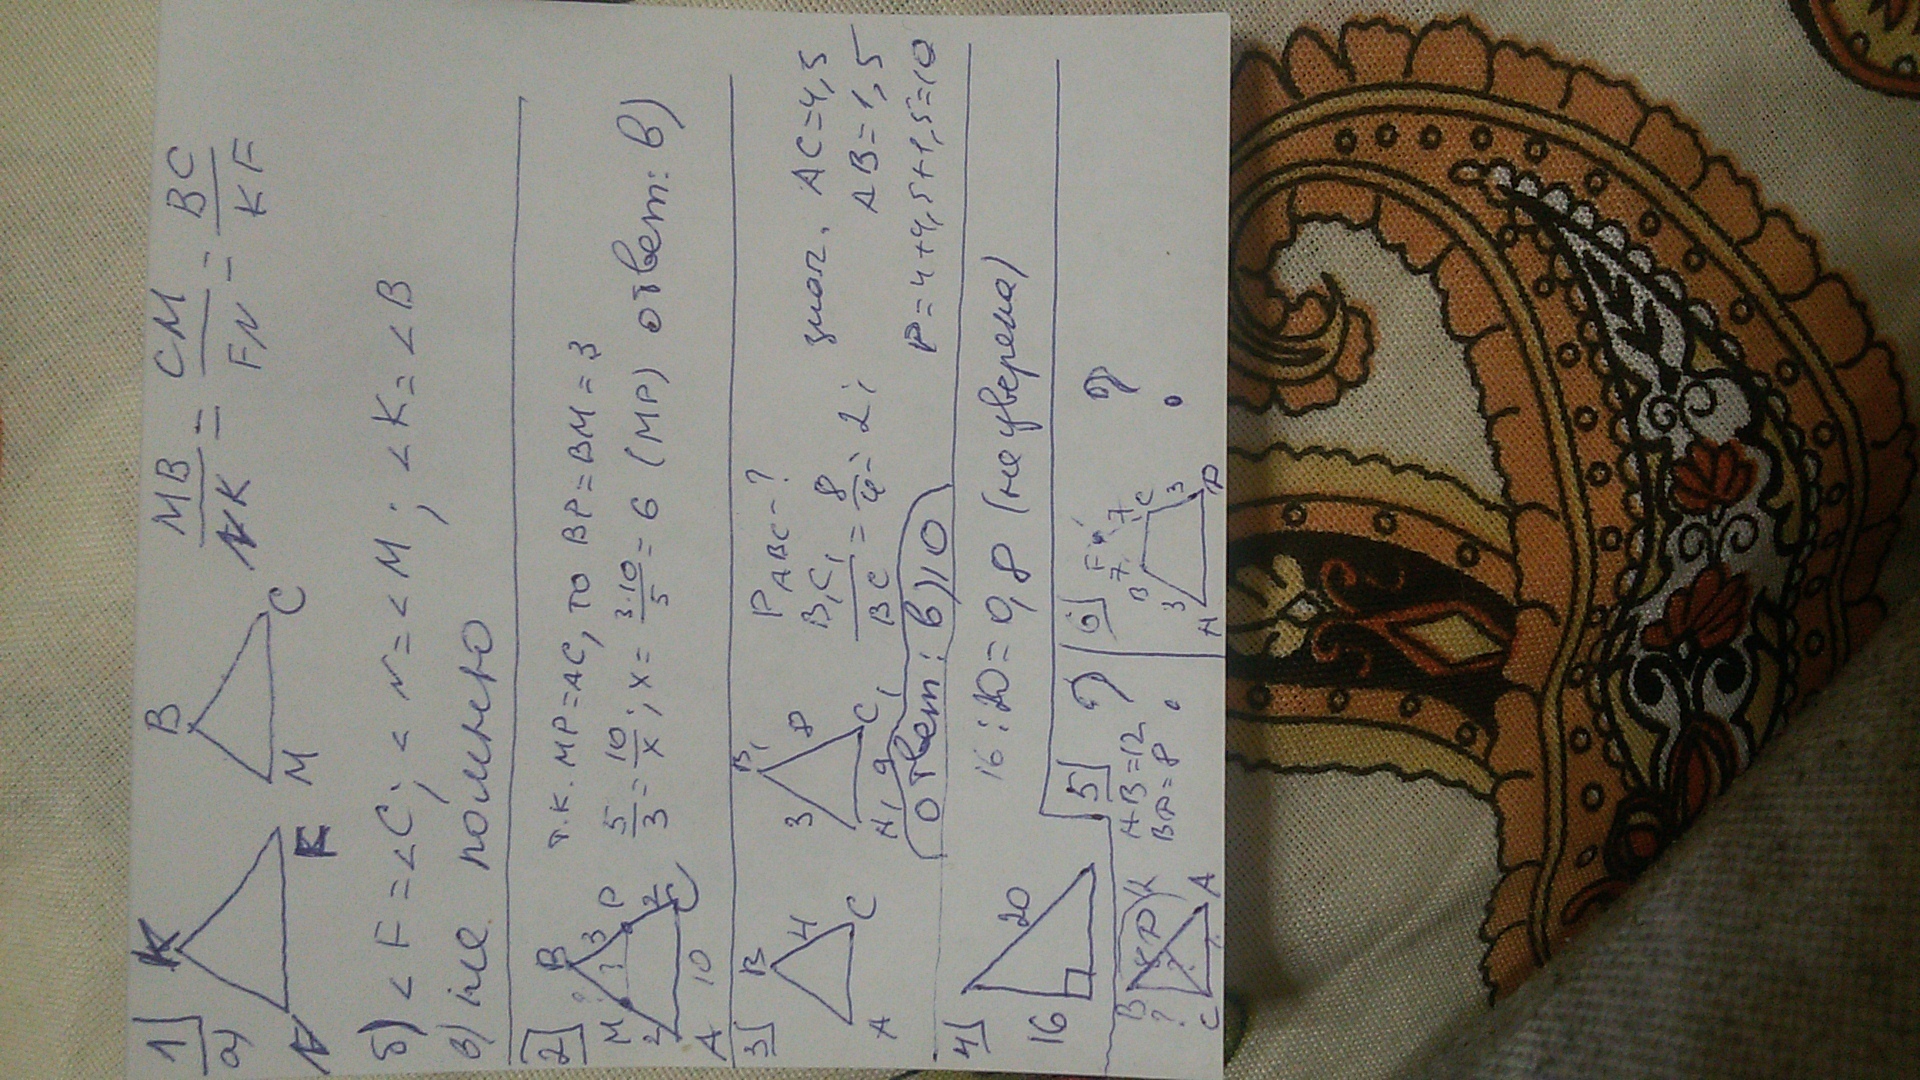 1
а)
K
N
F
B
M
C
MB/NK = CM/FN = BC/KF
б) <F = <C; <N = <M; <K = <B
в) не помню
2
B
M
3
P
2
2
A
10
C
т.к. MP=AC, то BP=BM=3
5/3 = 10/x; x = 3·10/5 = 6 (MP) ответ: в)
3
B
4
A
C
B₁
3
8
A₁
9
C₁
PABC-?
B₁C₁/BC = 8/4 = 2;
знач. AC=4,5
AB=1,5
P=4+4,5+1,5=10
ответ: в) 10
4
16
20
16:20=0,8 (не уверена)
5
B
?
K
P
C
A
AB=12
BP=8
?
6
F
B
7
7
C
3
3
A
D
?